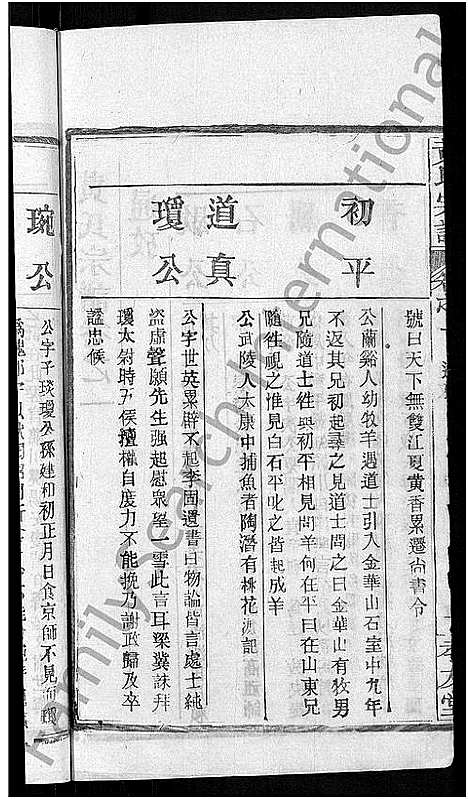 黃氏宗譜
號曰天下無雙江夏黃香累遷尚書令
初平
公蘭谿人幼牧羊遇道士引入金華山石室中九年
不返其兄初起尋之見道士問之曰金華山有牧男
兄隨道士徃與初平相見問羊何在平曰在山東兄
隨徃視之惟見白石平叱之皆起成羊
道真
公武陵人太康中捕魚者陶潛有桃花源記
瓊公
公字世英累辟不起李固遺書曰物論皆言處士純
盜虛聲願先生强起慰衆望一雪此言耳梁冀誅拜
瓊太尉時五侯擅權自度力不能挽乃謝政歸及卒
諡忠侯
琬公
公字子琰瓊公孫建和初正月日食京師不見而
Family Search International